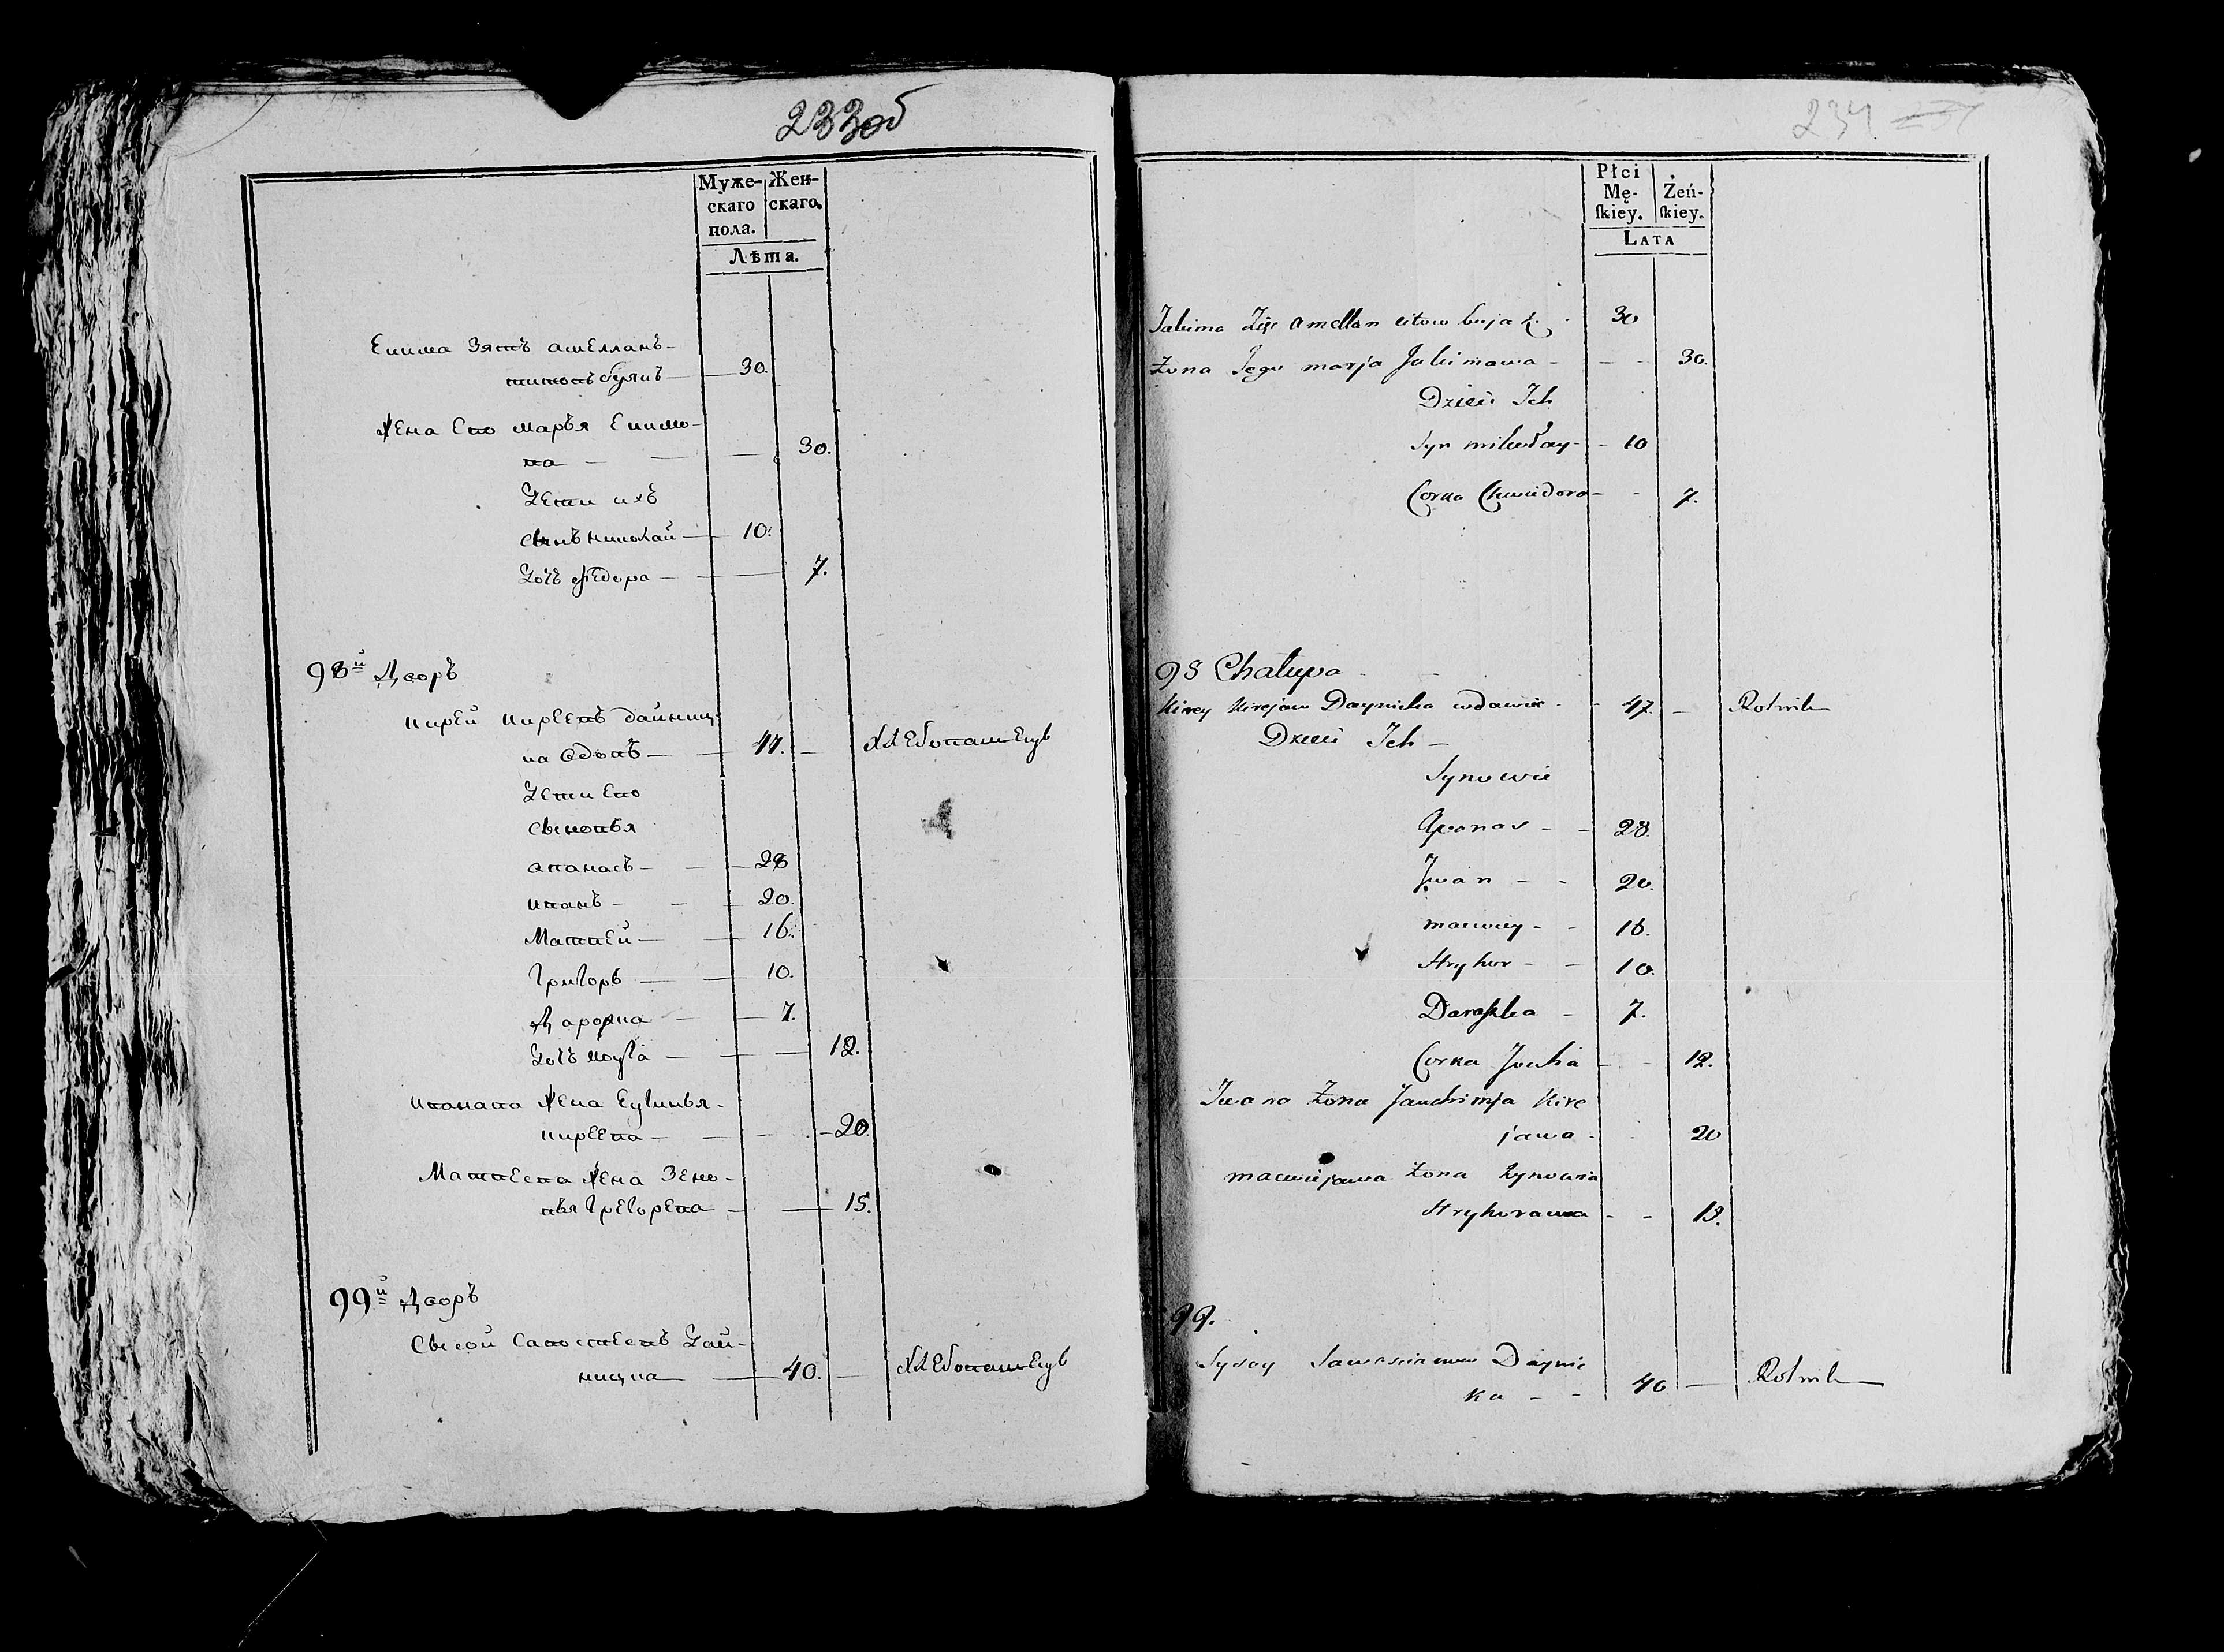 233об
Муже-
скаго
пола.
Жен-
скаго.
Лѣта.
Екима Зять амеллань-
товъ буякъ 30.
Жена Его марья Екимо-
ва 30.
Дети ихъ
сынъ николай 10.
Дочь Федора 7.
98й Дворъ
кирей киреевъ дайниц-
ка вдовъ 47. хлебопашецъ
Дети Его
сыновья
апанасъ 28
иванъ 20.
Матвей 16.
Григоръ 10.
Дарошка 7.
Дочь юуга 12.
ивана Жена Еугинья
киреева 20.
Матвеева Жена Зено-
вья Грегорева 15.
99й Дворъ
Сысой Савостеевъ Дай-
ницка 40. хлебопашецъ
234
Płci
Mę-
ſkiey.
Żeń-
ſkiey.
LATA
Jakima Zięc amellan bujak 30
Żona Jego marja Jakimawa 30.
Dzieci Ich
Syn mikołay 10
Corka Chwiedora 7.
98 Chałupa
Kirey Kirejaw Daynicka wdawiec 47. Rolnik
Dzieci Ich
Synowie
Apanas 28.
Jwan 20.
maciwiey 16.
Hryhor 10.
Daraszka 7.
Corka Jouha 12.
Iwana Żona Jauchimja Kire
jawa 20
maciwiejawa Żona Zynowia
Hryhorawa 15.
99.
Sysoy Daynic
ka 40 Rolnik